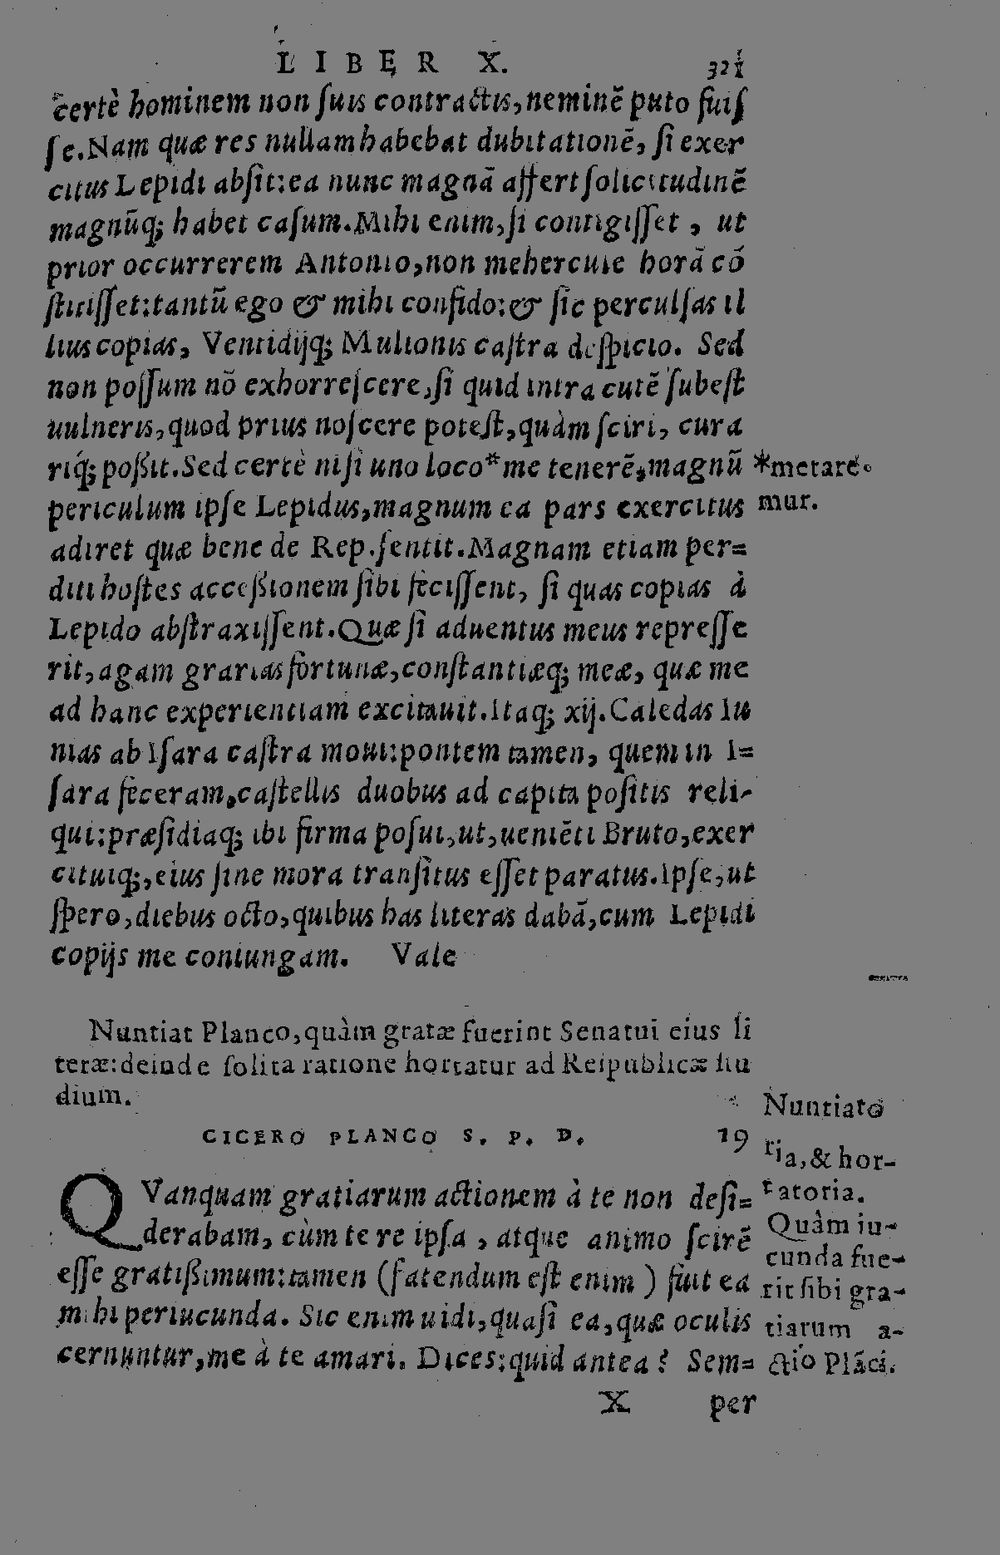 LIBER X. 321
certè hominem non ſuis contractis, neminē puto fuiſ
ſe. Nam quæ res nullam habebat dubitationē, ſi exer
citus Lepidi abſit: ea nunc magnā affert ſolicitudinē
magnūq; habet caſum. Mihi enim, ſi contigiſſet, ut
prior occurrerem Antonio, non mehercule horā cō
ſtitiſſet: tantū ego & mihi confido: & ſic perculſas il
lius copias, Ventidijq; Mulionis caſtra deſpicio. Sed
non poſſum nō exhorreſcere, ſi quid intra cutē ſubeſt
uulneris, quod prius noſcere poteſt, quàm ſciri, cura
riq́; poßit. Sed certè niſi uno loco* me tenerē, magnū
periculum ipſe Lepidus, magnum ea pars exercitus
adiret quæ bene de Rep. ſentit. Magnam etiam per=
diti hoſtes acceßionem ſibi feciſſent, ſi quas copias à
Lepido abſtraxiſſent. Quæ ſi aduentus meus repreſſe
rit, agam grarias fortunæ, conſtantiæq; meæ, quæ me
ad hanc experientiam excitauit. Itaq; xij. Caledas Iu
nias ab Iſara caſtra moui: pontem tamen, quem in I=
ſara feceram, caſtellis duobus ad capita poſitis reli-
qui: præſidiaq; ibi firma poſui, ut, ueniēti Bruto, exer
cituiq;, eius ſine mora tranſitus eſſet paratus. Ipſe, ut
ſpero, diebus octo, quibus has literas dabā, cum Lepidi
copijs me coniungam. Vale
*metare-
mur.
Nuntiat Planco, quàm gratæ fuerint Senatui eius li
teræ: deinde ſolita ratione hortatur ad Reipublicæ ſtu
dium.
CICERO PLANCO S. P. D. 19
QVanquam gratiarum actionem à te non deſi=
derabam, cùm te re ipſa, atque animo ſcirē
eſſe gratißimum: tamen (fatendum eſt enim) fuit ea
mihi periucunda. Sic enim uidi, quaſi ea, quæ oculis
cernuntur, me à te amari. Dices: quid antea? Sem=
Nuntiato
ria, & hor-
tatoria.
Quàm iu-
cunda fue-
rit ſibi gra-
tiarum a-
ctio Plāci.
X per